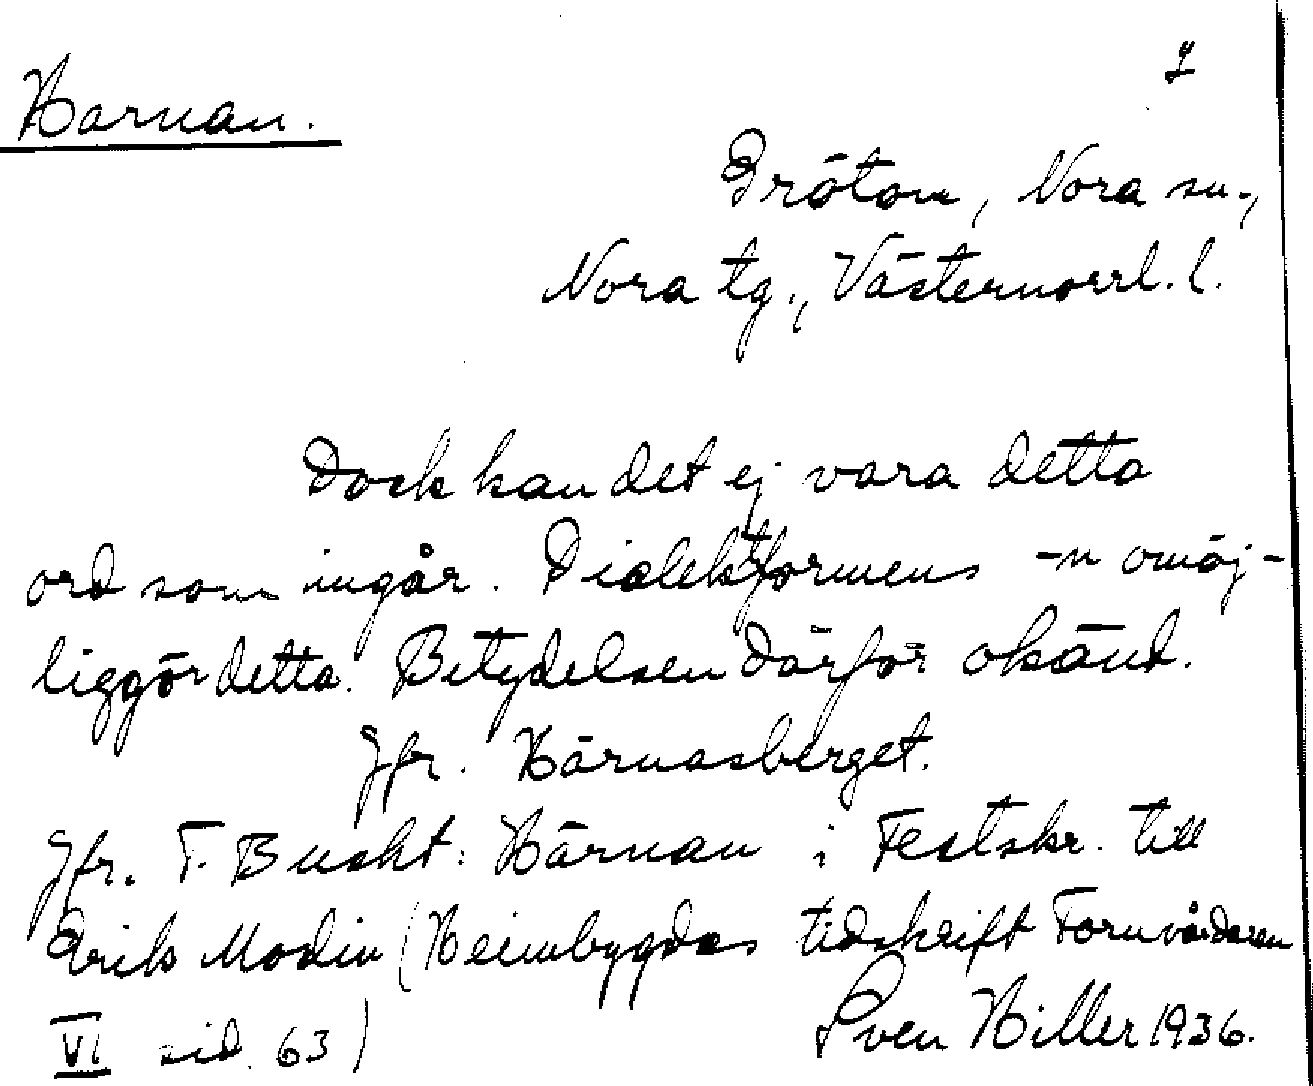 2
Härnan.
Grötom, Nora sn.,
Nora tg., Västernorrl. l.
Dock kan det ej vara detta
ord som ingår. Dialektformens -n omöj-
liggör detta. Betydelsen därför okänd.
Jfr. Härnasberget.
Jfr. T. Bucht: Härnan i Festskr. till
Erik Modin (Heimbygdas tidskrift Fornvårdaren
VI sid. 63)
Sven Hiller 1936.